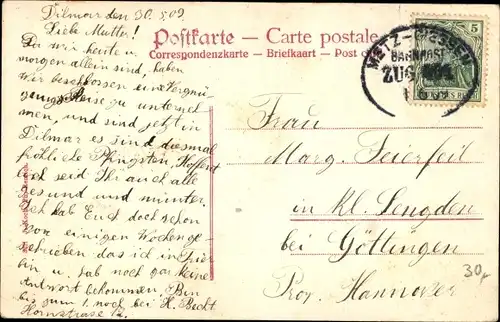 Dilmar den 30.5.09.
Liebe Mutter!
Da wir heute u.
morgen allein sind, haben
wir beschlossen eine Vergnü-
gungsreise zu unterneh
men, und sind jetzt in
Dilmar es sind diesmal
fröhliche Pfingsten, Hoffent
lich seid Ihr auch alle
gesund und munter.
Ich hab Euch doch schon
vor einigen Wochen ge-
schrieben das ich in Trier
bin u. hab noch gar keine
Antwort bekommen. Bin
bis zum 1. noch bei H. Becht
Hornstrasse 12.
Postkarte — Carte postale
Correspondenzkarte – Briefkaart –
METZ-GIESSEN
BAHNPOST
ZUG
5
Frau
Marg. Feierfeil
in Kl. Lengden
bei Göttingen
Prov. Hannover
30,-